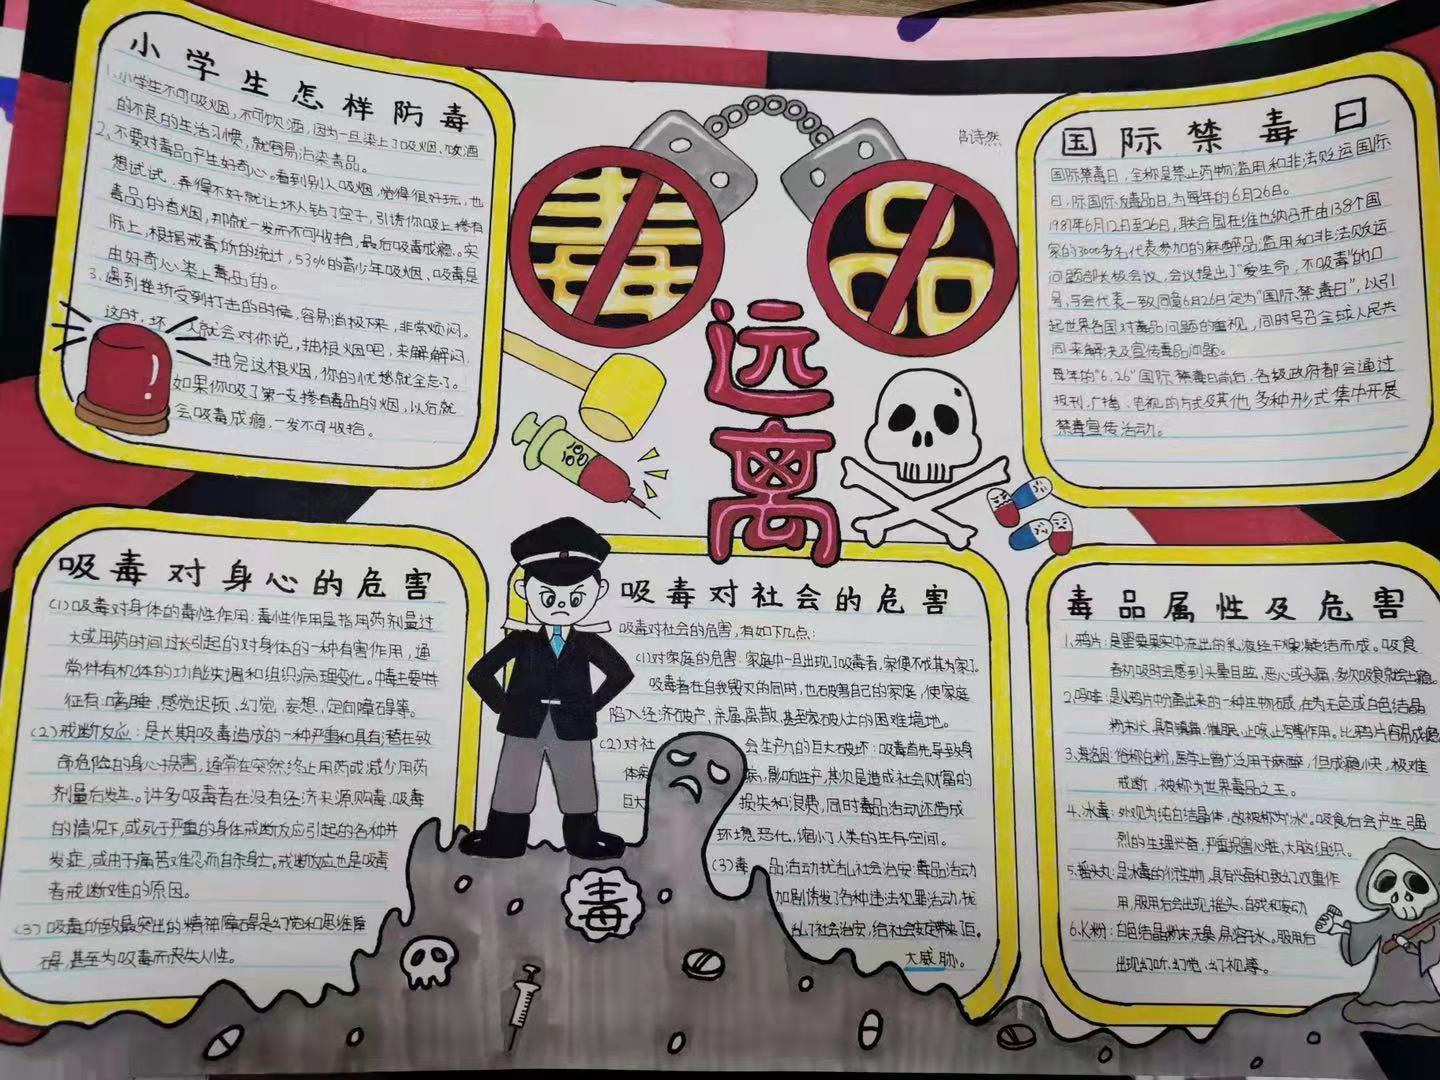 小学生怎样防毒
1、小学生不可吸烟，不可饮酒，因为一旦染上了吸烟、饮酒
的不良的生活习惯，就容易沾染毒品。
2、不要对毒品产生好奇心。看到别人吸烟，觉得很好玩，也
想试试，弄得不好就让坏人钻了空子，引诱你吸上掺有
毒品的香烟，那就一发而不可收拾，最后吸毒成瘾。实
际上，根据戒毒所的统计，53%的青少年吸烟、吸毒是
由好奇心染上毒品的。
3、遇到挫折受到打击的时候，容易消极下来，非常烦闷。
这时，坏人就会对你说，抽根烟吧，来解解闷，
抽完这根烟，你的忧愁就全忘了。
如果你吸了第一支掺有毒品的烟，以后就
会吸毒成瘾，一发不可收拾。
毒品
远离
诗然
国际禁毒日
国际禁毒日，全称是禁止药物滥用和非法贩运国际
日，际国际反毒品日，为每年的6月26日。
1987年6月12日至26日，联合国在维也纳召开由138个国
家的3000多名代表参加的麻醉品滥用和非法贩运
问题部长级会议，会议提出了“爱生命，不吸毒”的口
号，与会代表一致同意6月26日定为“国际禁毒日”，以引
起世界各国对毒品问题的重视，同时号召全球人民共
同来解决及宣传毒品问题。
每年的“6.26”国际禁毒日前后，各级政府都会通过
报刊、广播、电视的方式及其他多种形式集中开展
禁毒宣传活动。
吸毒对身心的危害
(1)吸毒对身体的毒性作用：毒性作用是指用药剂量过
大或用药时间过长引起的对身体的一种有害作用，通
常伴有机体的功能失调和组织病理变化。中毒主要特
征有：嗜睡、感觉迟顿、幻觉、妄想、定向障碍等。
(2)戒断反应：是长期吸毒造成的一种严重和具有潜在致
命危险的身心损害，通常在突然终止用药或减少用药
剂量后发生。许多吸毒者在没有经济来源购毒、吸毒
的情况下，或死于严重的身体戒断反应引起的各种并
发症，或由于痛苦难忍而自杀身亡。戒断反应也是吸毒
者戒断难的原因。
(3)吸毒所致最突出的精神障碍是幻觉和思维障
碍，甚至为吸毒而丧失人性。
吸毒对社会的危害
吸毒对社会的危害，有如下几点：
(1)对家庭的危害：家庭中一旦出现了吸毒者，家便不成其为家了。
吸毒者在自我毁灭的同时，也破害自己的家庭，使家庭
陷入经济破产、亲属离散、甚至家破人亡的困难境地。
(2)对社会生产力的巨大破坏：吸毒首先导致身
体疾病，影响生产，其次是造成社会财富的
巨大损失和浪费，同时毒品活动还造成
环境恶化，缩小了人类的生存空间。
(3)毒品活动扰乱社会治安：毒品活动
加剧诱发了各种违法犯罪活动，扰
乱了社会治安，给社会安定带来了巨
大威胁。
毒
毒品属性及危害
1、鸦片：是罂粟果实中流出的乳液经干燥凝结而成。吸食
者初吸时会感到头晕目眩、恶心或头痛，多次吸食就会上瘾。
2、吗啡：是从鸦片中分离出来的一种生物碱，在为无色或白色结晶
粉末状，具有镇痛、催眠、止咳、止泻等作用。比鸦片容易成瘾
3、海洛因：俗称白粉，医学上曾广泛用于麻醉，但成瘾小快，极难
戒断，被称为世界毒品之王。
4、冰毒：外观为纯白结晶体，故被称为“冰”。吸食后会产生强
烈的生理兴奋，严重损害心脏、大脑组织。
5、摇头丸：是冰毒的衍生物，具有兴奋和致幻双重作
用，服用后会出现、摇头、自戏和妄动
6、K粉：白色结晶粉末无臭，易溶于水。服用后
出现幻听、幻觉、幻视等。